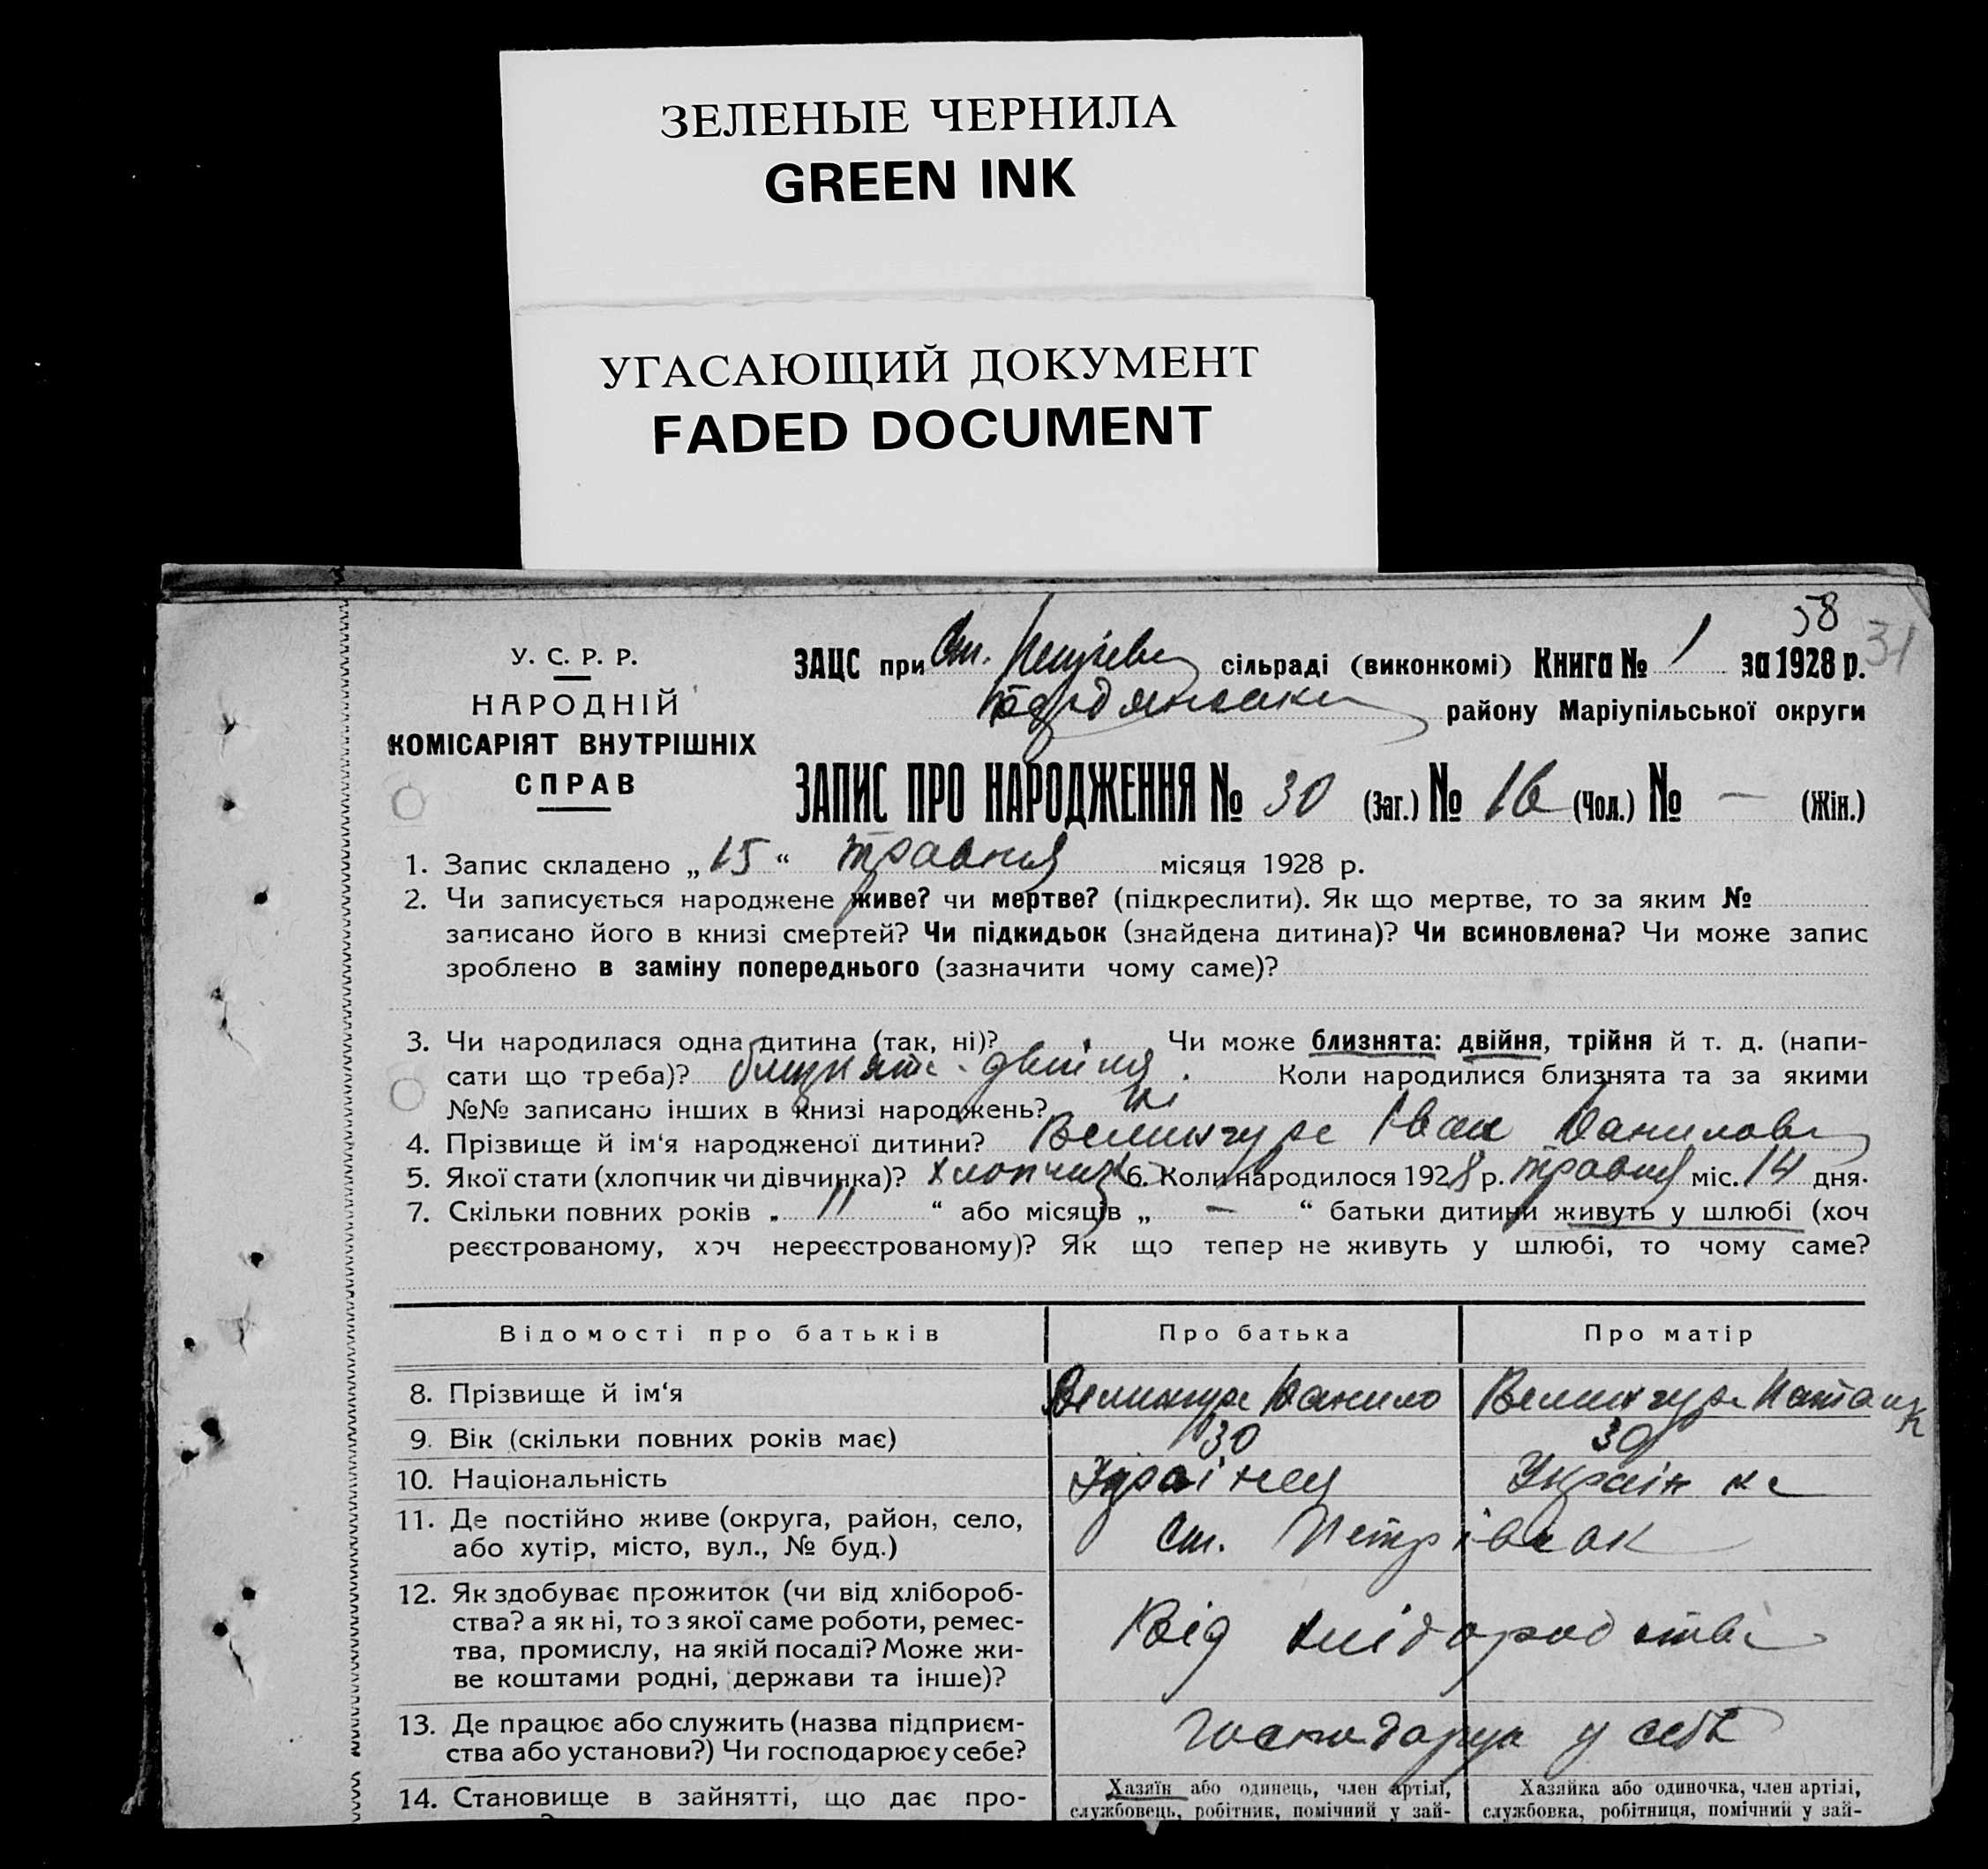 ЗЕЛЕНЫЕ ЧЕРНИЛА
GREEN INK
УГАСАЮЩИЙ ДОКУМЕНТ
FADED DOCUMENT
58
31
У. С. Р. Р.
НАРОДНІЙ
КОМІСАРІЯТ ВНУТРІШНІХ
СПРАВ
ЗАЦС при Ст. сільраді (виконкомі) Книга № 1 за 1928 р.
району Маріупільської округи
ЗАПИС ПРО НАРОДЖЕННЯ № 30 (Заг.) № 16 (Чол.) № — (Жін.)
1. Запис складено „15“ травня місяця 1928 р.
2. Чи записується народжене живе? чи мертве? (підкреслити). Як що мертве, то за яким №
записано його в книзі смертей? Чи підкидьок (знайдена дитина)? Чи всиновлена? Чи може запис
зроблено в заміну попереднього (зазначити чому саме)?
3. Чи народилася одна дитина (так, ні)? Чи може близнята: двійня, трійня й т. д. (напи-
сати що треба)? двійня. Коли народилися близнята та за якими
№№ записано інших в книзі народжень?
4. Прізвище й ім‘я народженої дитини? Іван
5. Якої стати (хлопчик чи дівчинка)? хлопчик 6. Коли народилося 1928 р. травня міс. 14 дня.
7. Скільки повних років „ 11 “ або місяців „ — “ батьки дитини живуть у шлюбі (хоч
реєстрованому, хоч нереєстрованому)? Як що тепер не живуть у шлюбі, то чому саме?
Відомості про батьків Про батька Про матір
8. Прізвище й ім‘я Данило
9. Вік (скільки повних років має) 30 30
10. Національність Українка
11. Де постійно живе (округа, район, село,
або хутір, місто, вул., № буд.) ст.
12. Як здобуває прожиток (чи від хлібороб-
ства? а як ні, то з якої саме роботи, ремес-
тва, промислу, на якій посаді? Може жи-
ве коштами родні, держави та інше)? Від
13. Де працює або служить (назва підприєм-
ства або установи?) Чи господарює у себе? у себе
14. Становище в зайнятті, що дає про- Хазяїн або одинець, член артілі, Хазяйка або одиночка, член артілі,
службовець, робітник, помічний у зай- службовка, робітниця, помічний у зай-